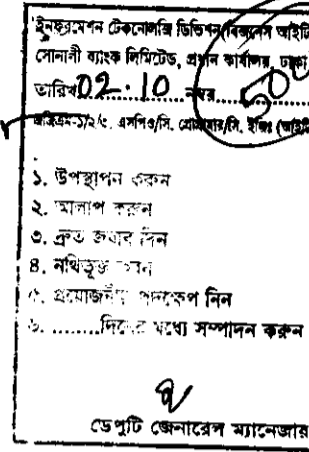 ইনফরমেশন টেকনোলজি ডিভিশন(বিজনেস আইটি
সোনালী ব্যাংক লিমিটেড, প্রধান কার্যালয়, ঢাকা
তারিখ 02.10 নম্বর
এসপিও/সি. প্রোগ্রামার/সি. ইঞ্জিঃ (আইটি
১. উপস্থাপন করুন
২. আলাপ করুন
৩. দ্রুত জবাব দিন
৪. নথিভূক্ত করুন
৫. প্রয়োজনীয় পদক্ষেপ নিন
৬. ........দিনের মধ্যে সম্পাদন করুন
ডেপুটি জেনারেল ম্যানেজার